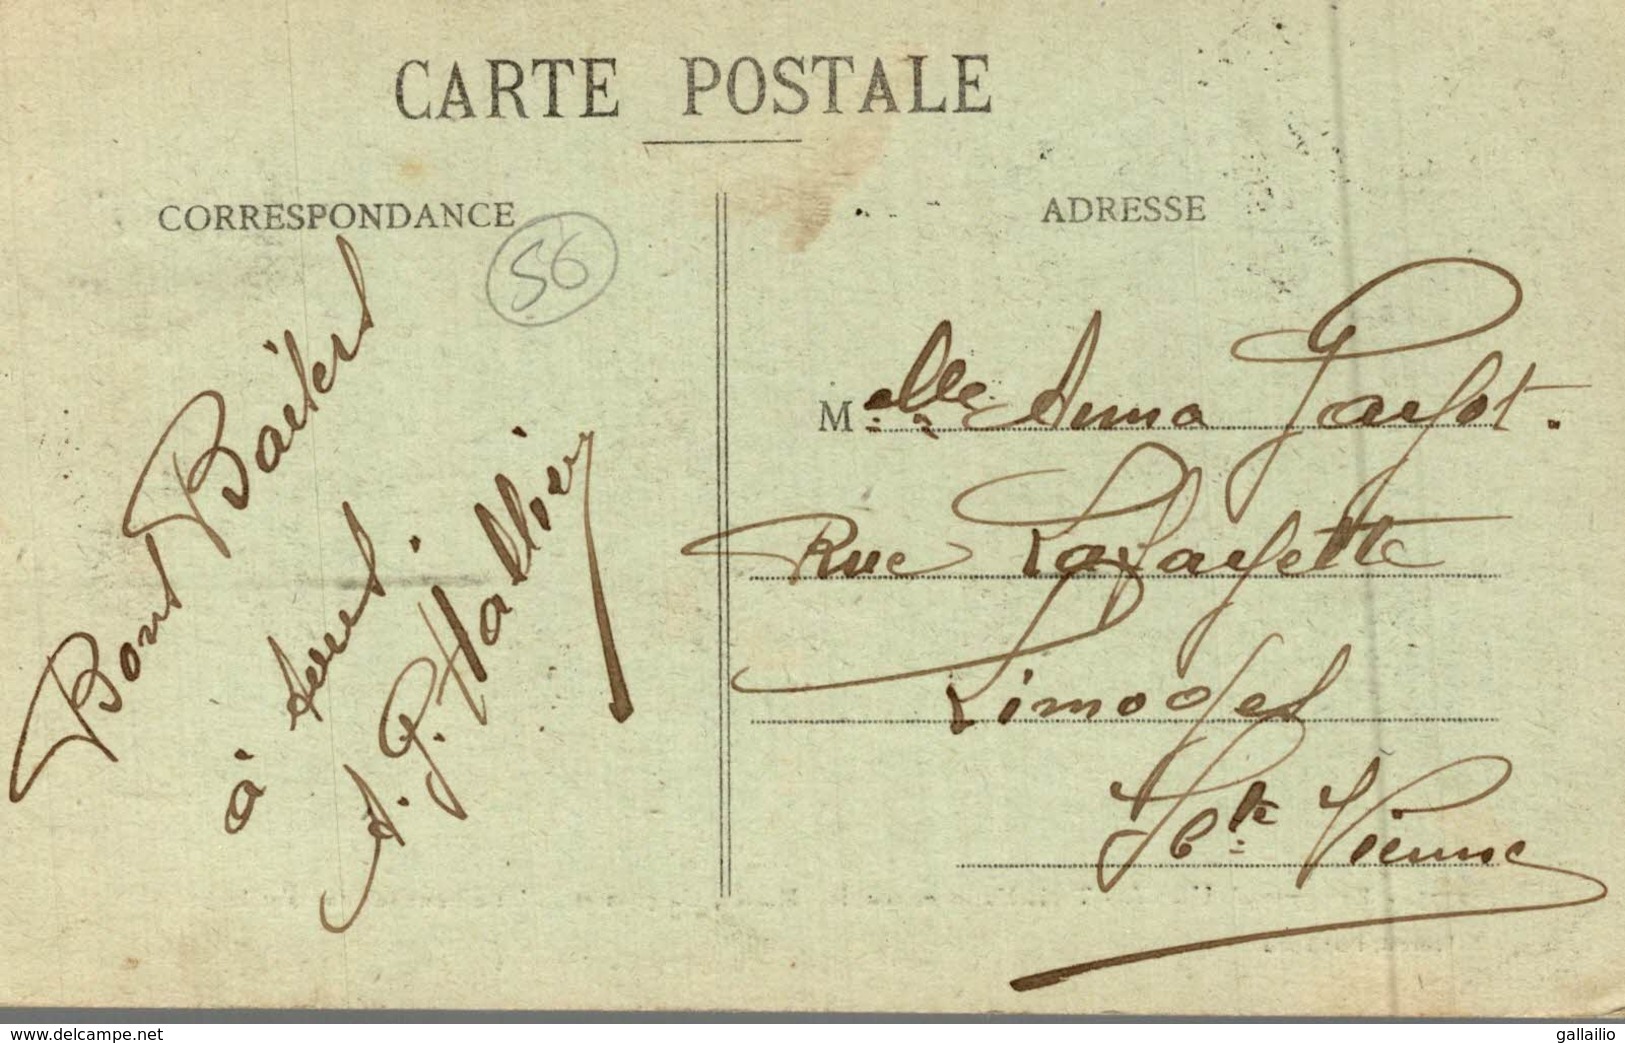 CARTE POSTALE
CORRESPONDANCE
56
Bons Baisers
à tous.
A. G. Hallier
ADRESSE
Melle Anna Gayot.
Rue Lafayette
Limoges
Hte Vienne
www.delcampe.net
gallailio